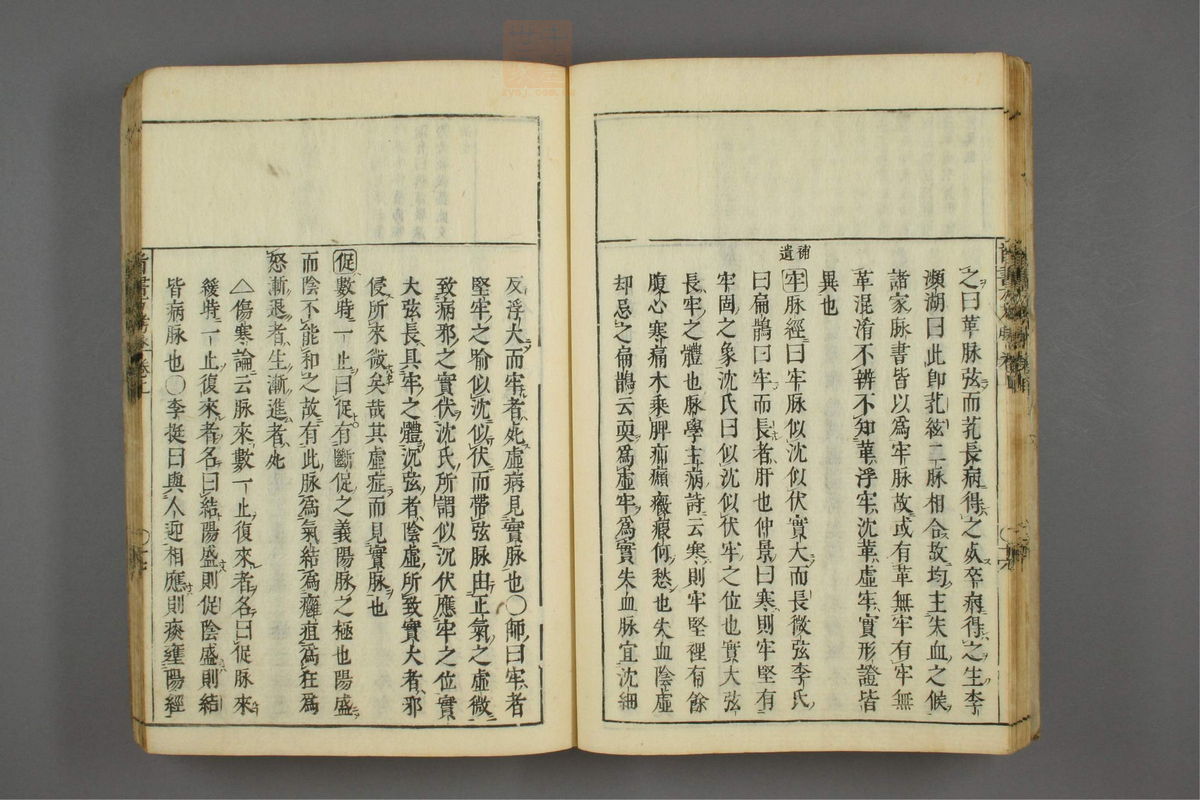 之曰革脉弦而芤長病得之死卒病得之生李
瀕湖曰此卽芤弦二脉相合故均主失血之候
諸家脉書皆以爲牢脉故或有革無牢有牢無
革混淆不辨不知革浮牢沈革虛牢實形證皆
異也
補遺
牢脉經曰牢脉似沈似伏實大而長微弦李氏
曰扁鵲曰牢而長者肝也仲景曰寒則牢堅有
牢固之象沈氏曰似沈似伏牢之位也實大弦
長牢之體也脉學主病詩云寒則牢堅裡有餘
腹心寒痛木乘脾疝㿗癥瘕何愁也失血陰虛
却忌之扁鵲云耎爲虛牢爲實失血脉宜沈細
反浮大而牢者死虛病見實脉也○師曰牢者
堅牢之喻似沈似伏而帶弦脉由正氣之虛微
致病邪之實伏沈氏所謂似沉伏應牢之位實
大弦長具牢之體沉弦者陰虛所致實大者邪
侵所來微矣哉其虛症而見實脉也
促數時一止曰促有斷促之義陽脉之極也陽盛
而陰不能和之故有此脉爲氣結爲癰疽爲狂爲
怒漸退者生漸進者死
△傷寒論云脉來數一止復來者名曰促脉來
緩時一止復來者名曰結陽盛則促陰盛則結
皆病脉也○李挺曰與人迎相應則痰壅陽經